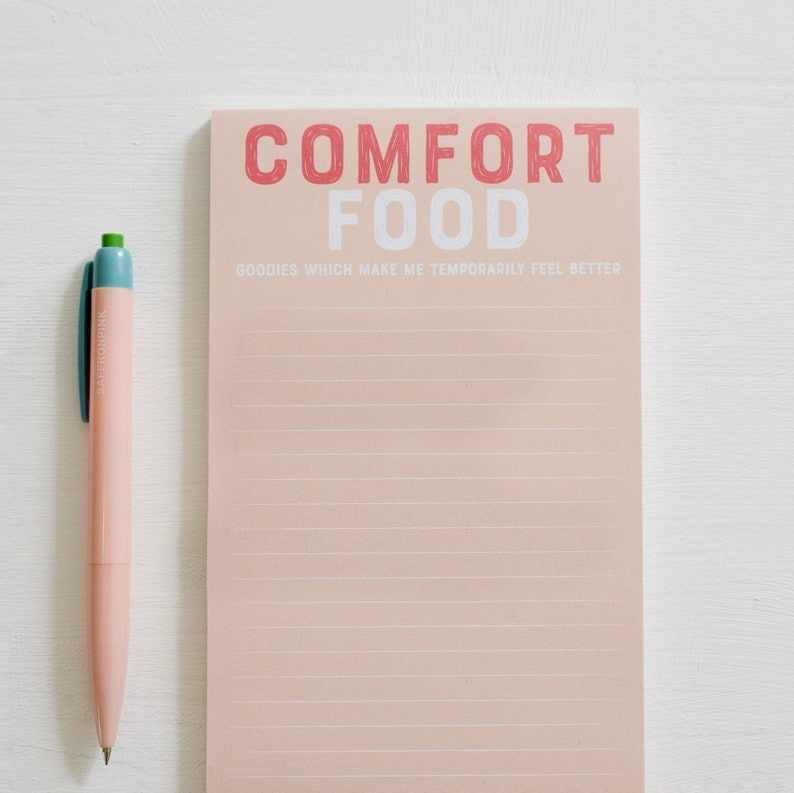 COMFORT
FOOD
GOODIES WHICH MAKE ME TEMPORARILY FEEL BETTER
SAFFRONPINK